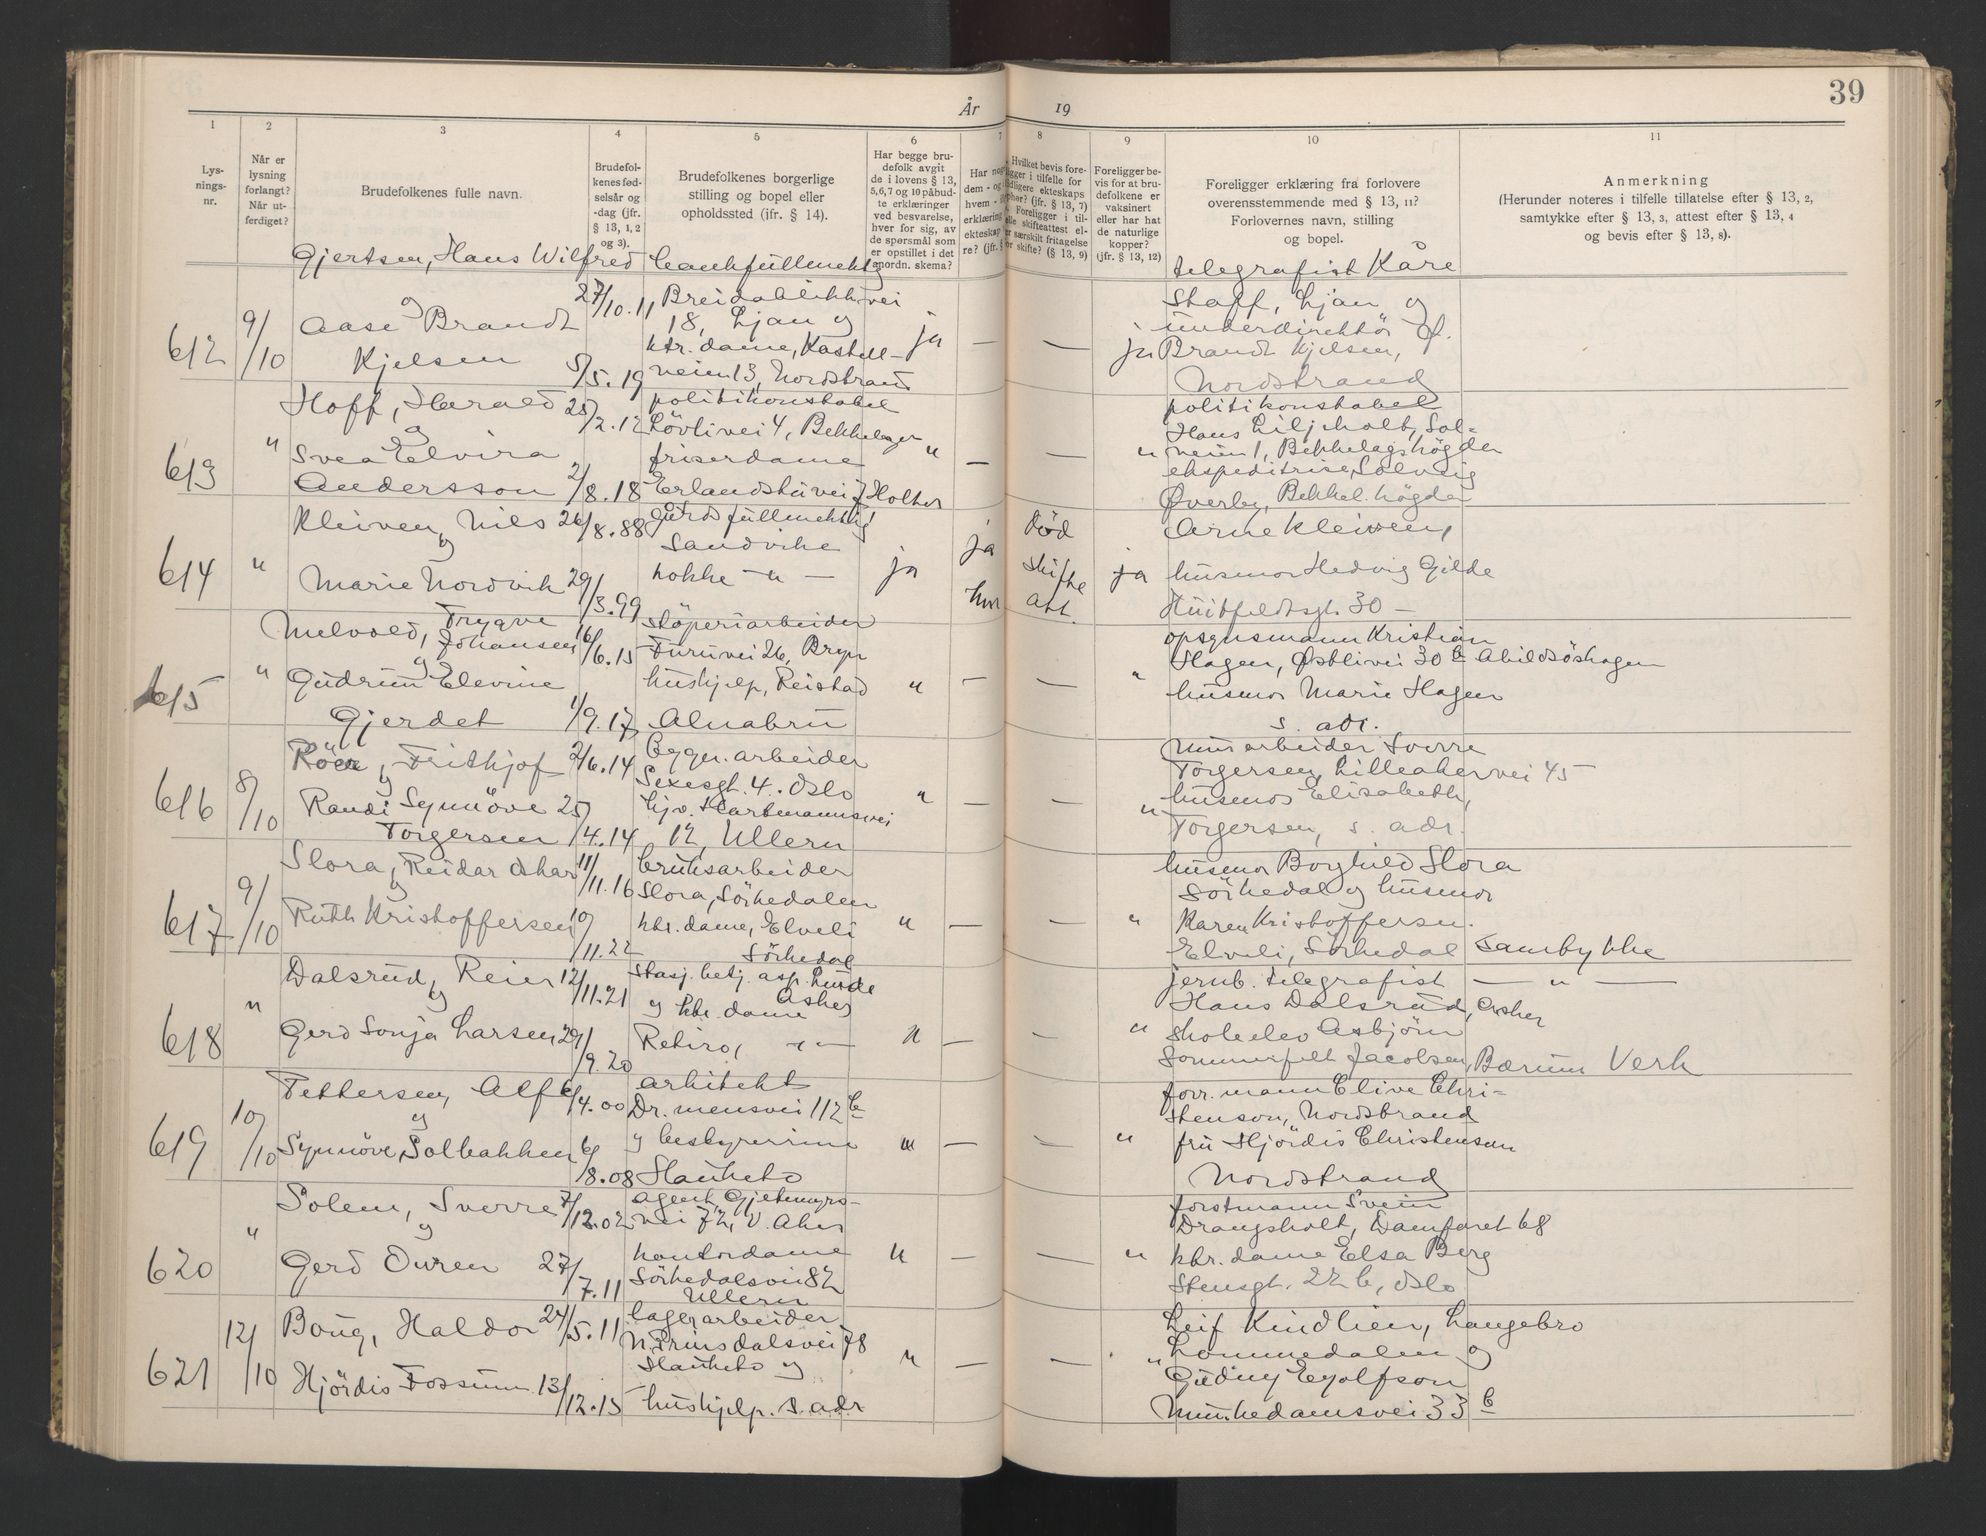 År 19
39
1 2 3 4 5 6 7 8 9 10 11
Lys-
nings-
nr.
Når er
lysning
forlangt?
Når ut-
ferdiget?
Brudefolkenes fulle navn.
Brudefol-
kenes fød-
selsår og
-dag (jfr.
§ 13, 1, 2
og 3).
Brudefolkenes borgerlige
stilling og bopel eller
opholdssted (jfr. § 14).
Har begge bru-
defolk avgit
de i lovens § 13,
5,6,7 og 10 påbud-
te erklæringer
ved besvarelse,
hver for sig, av
de spørsmål som
er opstillet i det
anordn. skema?
Har nog
dem - og
hvem -
erklæring
ekteskap
re? (jfr. §
Hvilket bevis fore-
ligger i tilfelle for
tidligere ekteskaps
ophør? (jfr. § 13, 7)
Foreligger i til-
felle skifteattest el-
ler særskilt fritagelse
for skifte? (§ 13, 9)
Foreligger be-
vis for at bru-
defolkene er
vaksinert
eller har hat
de naturlige
kopper?
(jfr. § 13, 12)
Foreligger erklæring fra forlovere
overensstemmende med § 13, 11?
Forlovernes navn, stilling
og bopel.
Anmerkning
(Herunder noteres i tilfelle tillatelse efter § 13, 2,
samtykke efter § 13, 3, attest efter § 13, 4
og bevis efter § 13, 8).
612
9/10
Gjertsen, Hans Wilfred
og
Aase Brandt
Kjelsen
27/10.11
5/5.19
bankfullmektig
Breidablikkvei
18, Ljan og
ktr. dame, Kastell-
veien 13, Nordstrand
ja — — ja
telegrafist Kåre
Staff, Ljan og
underdirektör Ø.
Brandt Kjelsen,
Nordstrand
613
"
Hoff, Harald
og
Svea Elvira
Andersson
25/2.12
2/8.18
politikonstabel
Lövlivei 4, Bekkelaget
friserdame
Erlandstuvei 7 Holter
" — — "
politikonstabel
Hans Liljeholt, Sol-
veien 1, Bekkelagshögda
ekspeditrise Solveig
Øverby, Bekkel. högda
614
"
Kleiven, Nils
og
Marie Nordvik
26/8.88
29/3.99
gårdsfullmektig
Sandvike
kokke — " —
ja
ja
hun
död
skifte
att.
ja
Arne Kleiven,
husmor Hedvig Gilde
Huitfeldtsgt. 30 —
615
"
Melvold, Trygve
Johansen
og
Gudrun Elevine
Gjerdet
16/6.15
1/9.17
stöperiarbeider
Furuvei 26, Bryn
hushjelp, Reistad
Alnabru
" — — "
opsynsmann Kristian
Hagen, Østlivei 30 b Abildsöhagen
husmor Marie Hagen
s. adr.
616
8/10
Röer, Frithjof
og
Randi Synnöve
Torgersen
2/6.14
25/4.14
bygn. arbeider
Sexesgt. 4. Oslo
hjv. Hartmannsvei
12, Ullern
" — — "
murarbeider Sverre
Torgersen, Lilleakervei 45
husmor Elisabeth
Torgersen, s. adr.
617
9/10
Slora, Reidar Oskar
og
Ruth Kristoffersen
11/11.16
10/11.22
bruksarbeider
Slora, Sörkedalen
ktr. dame, Elveli
Sörkedal
" — — "
husmor Borghild Slora
Sörkedal og husmor
Karen Kristoffersen.
Elveli, Sörkedal
Samtykke
618
"
Dalsrud, Reier
og
Gerd Sonja Larsen
12/11.21
29/9.20
stasj. betj. asp. Lunde
Asker
og ktr. dame
Retiro, — " —
" — — "
jernb. telegrafist
Hans Dalsrud, Asker
skoleelev Asbjörn
Sommerfelt Jacobsen, Bærum Verk
— " —
619
10/10
Pettersen, Alf
og
Synnöve Solbakken
6/4.00
6/8.08
arkitekt
Dr. mensvei 112 b
og bestyrerinne
Hauketo
" — — "
forr. mann Elive Chri-
stenson, Nordstrand
fru Hjördis Christenson
Nordstrand
620
"
Solem, Sverre
og
Gerd Ouren
7/12.02
27/7.11
agent, Gjetemyrs-
vei 72, V. Aker
kontordame
Sörkedalsvei 82
Ullern
" — — "
forstmann Svein
Drangsholt, Damfaret 68
ktr. dame Elsa Berg
Stensgt. 22 b, Oslo
621
12/10
Boug, Haldor
Hjördis Fossum
24/5.11
13/12.15
lagerarbeider
N. Prinsdalsvei 78
Hauketo og
hushjelp. s. adr
" — — "
Leif Kindlien, Langebro
Lommedalen og
Gudny Eyolfson
Munkedamsvei 33 b